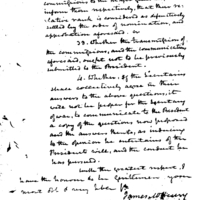 commissions to the
inform them respectively, that their re-
-lative rank is considered as definitively
settled by the order of nomination, and
approbation aforesaid. or
3d. Whether the transmission of
the commissions, and the communication
aforesaid, ought not to be previously
submitted to the President.
4. Whether, if the Secretaries
shall collectively agree in their
answers to the above questions, it
will not be proper for the Secretary
of war, to communicate to the President
a copy of the questions now proposed
and the answers thereto, as
the opinion he entertains of the
President's will, and the conduct to
be pursued.
With the greatest respect, I
have the honour to be Gentlemen your
most Obt. & very
James McHenry